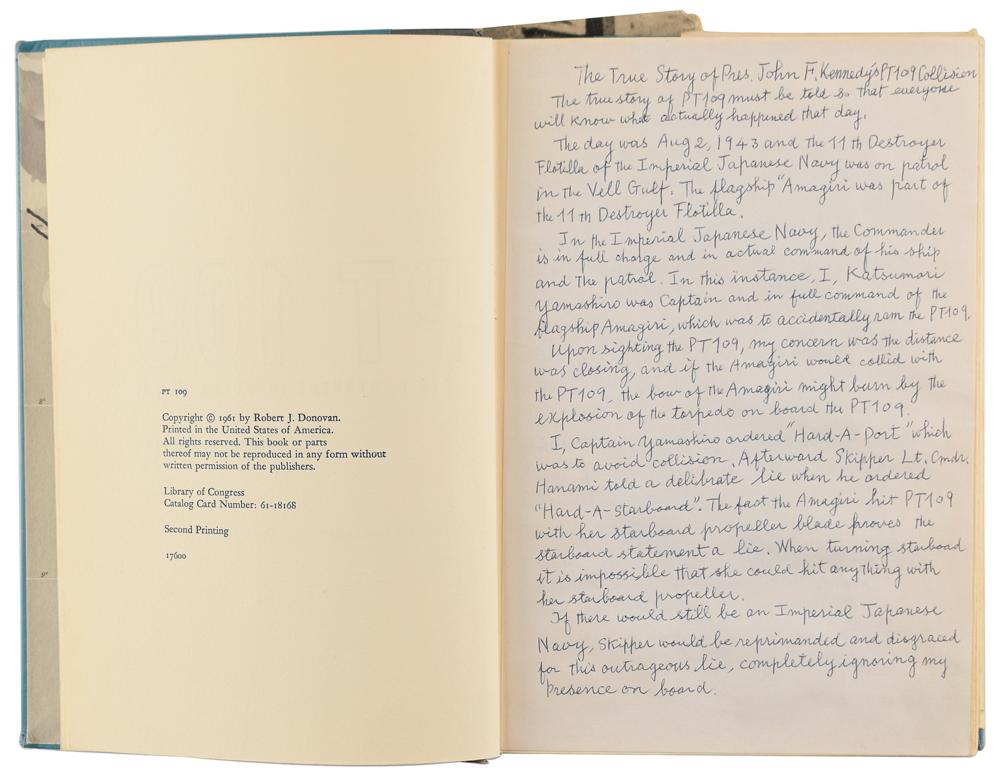 PT 109
Copyright © 1961 by Robert J. Donovan.
Printed in the United States of America.
All rights reserved. This book or parts
thereof may not be reproduced in any form without
written permission of the publishers.
Library of Congress
Catalog Card Number: 61-18168
Second Printing
17600
The True Story of Pres. John F. Kennedy's PT109 Collision
The true story of PT109 must be told so that everyone
will know what actually happened that day.
The day was Aug 2, 1943 and the 11th Destroyer
Flotilla of the Imperial Japanese Navy was on patrol
in the Vell Gulf. The flagship "Amagiri was part of
the 11th Destroyer Flotilla.
In the Imperial Japanese Navy, the Commander
is in full charge and in actual command of his ship
and the patrol. In this instance, I, Katsumori
Yamashiro was Captain and in full command of the
flagship Amagiri, which was to accidentally ram the PT109.
Upon sighting the PT109, my concern was the distance
was closing, and if the Amagiri would collid with
the PT109, the bow of the Amagiri might burn by the
explosion of the torpedo on board the PT109.
I, Captain Yamashiro ordered "Hard-A-Port" which
was to avoid collision. Afterward Skipper Lt. Cmdr.
Hanami told a delibrate lie when he ordered
"Hard-A-Starboard". The fact the Amagiri hit PT109
with her starboard propeller blade proves the
starboard statement a lie. When turning starboad
it is impossible that she could hit anything with
her starboard propeller.
If there would still be an Imperial Japanese
Navy, Skipper would be reprimanded and disgraced
for this outrageous lie, completely ignoring my
presence on board.